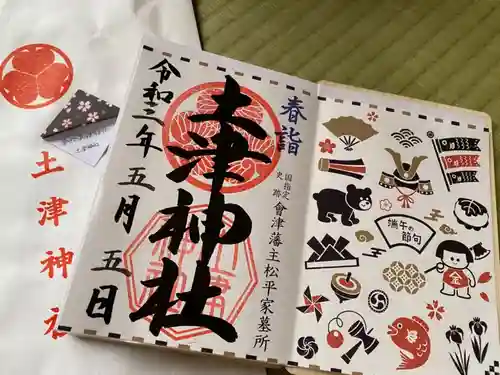 土津神社
令和三年五月五日
土津神社
春詣
国指定
史跡
會津藩主松平家墓所
端午の
節句
金